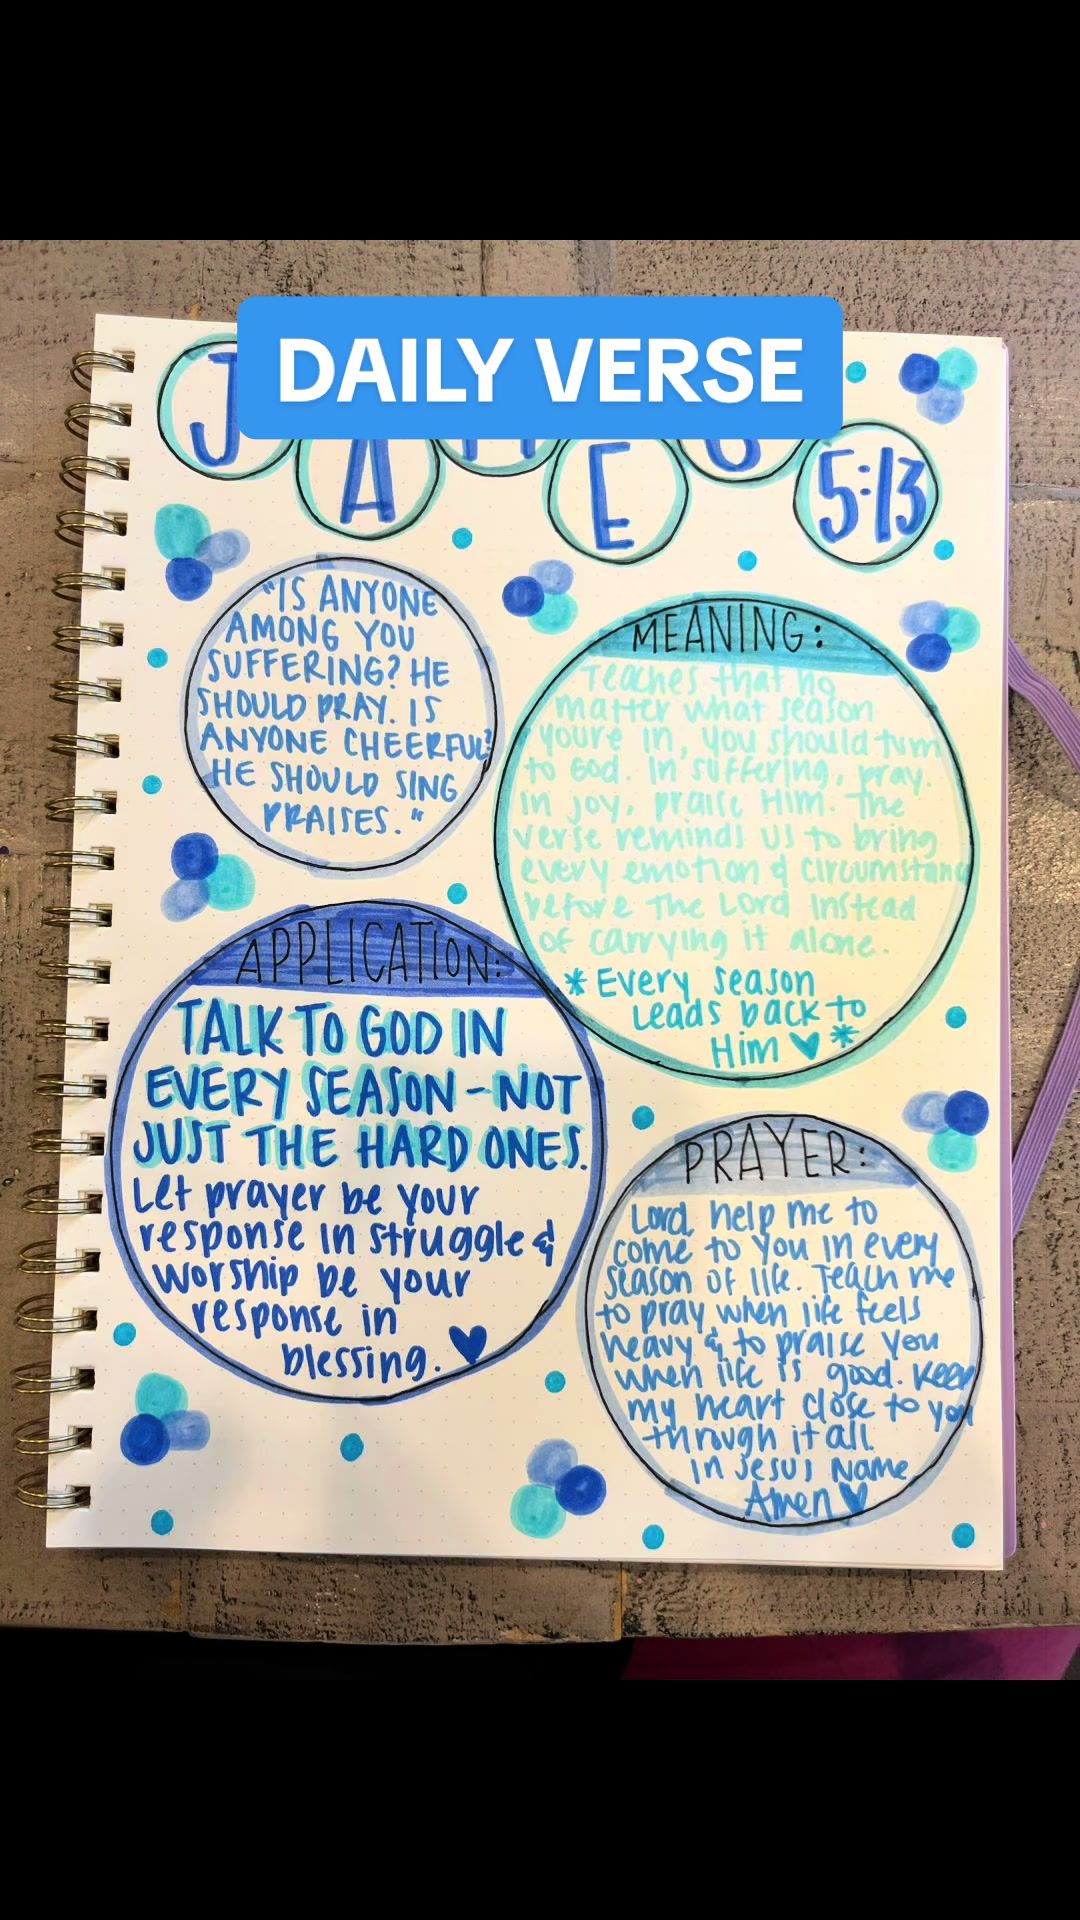 DAILY VERSE
J A M E S 5:13
"IS ANYONE
AMONG YOU
SUFFERING? HE
SHOULD PRAY. IS
ANYONE CHEERFUL?
HE SHOULD SING
PRAISES."
MEANING:
Teaches that no
matter what season
you're in, you should turn
to God. In suffering, pray.
In joy, praise Him. The
verse reminds us to bring
every emotion & circumstanc
before the Lord instead
of carrying it alone.
*Every season
Leads back to
Him ♥*
APPLICATION:
TALK TO GOD IN
EVERY SEASON - NOT
JUST THE HARD ONES.
Let prayer be your
response in struggle &
worship be your
response in
blessing. ♥
PRAYER:
Lord, help me to
come to You in every
season of life. Teach me
to pray when life feels
heavy & to praise You
when life is good. Keep
my heart close to you
through it all.
In Jesus Name
Amen ♥